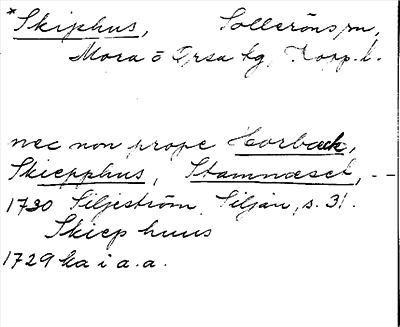 *Skiphus, Solleröns sn,
Mora o Orsa tg, Kopp. l.
nec non prope Horbeck,
Skiepphus, Stamnæset, --
1730 Siljeström, Siljan, s. 31.
Skiephuus
1729 ka i a.a.